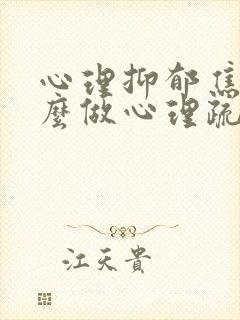 心理抑郁焦
麼做心理疏
江天貴